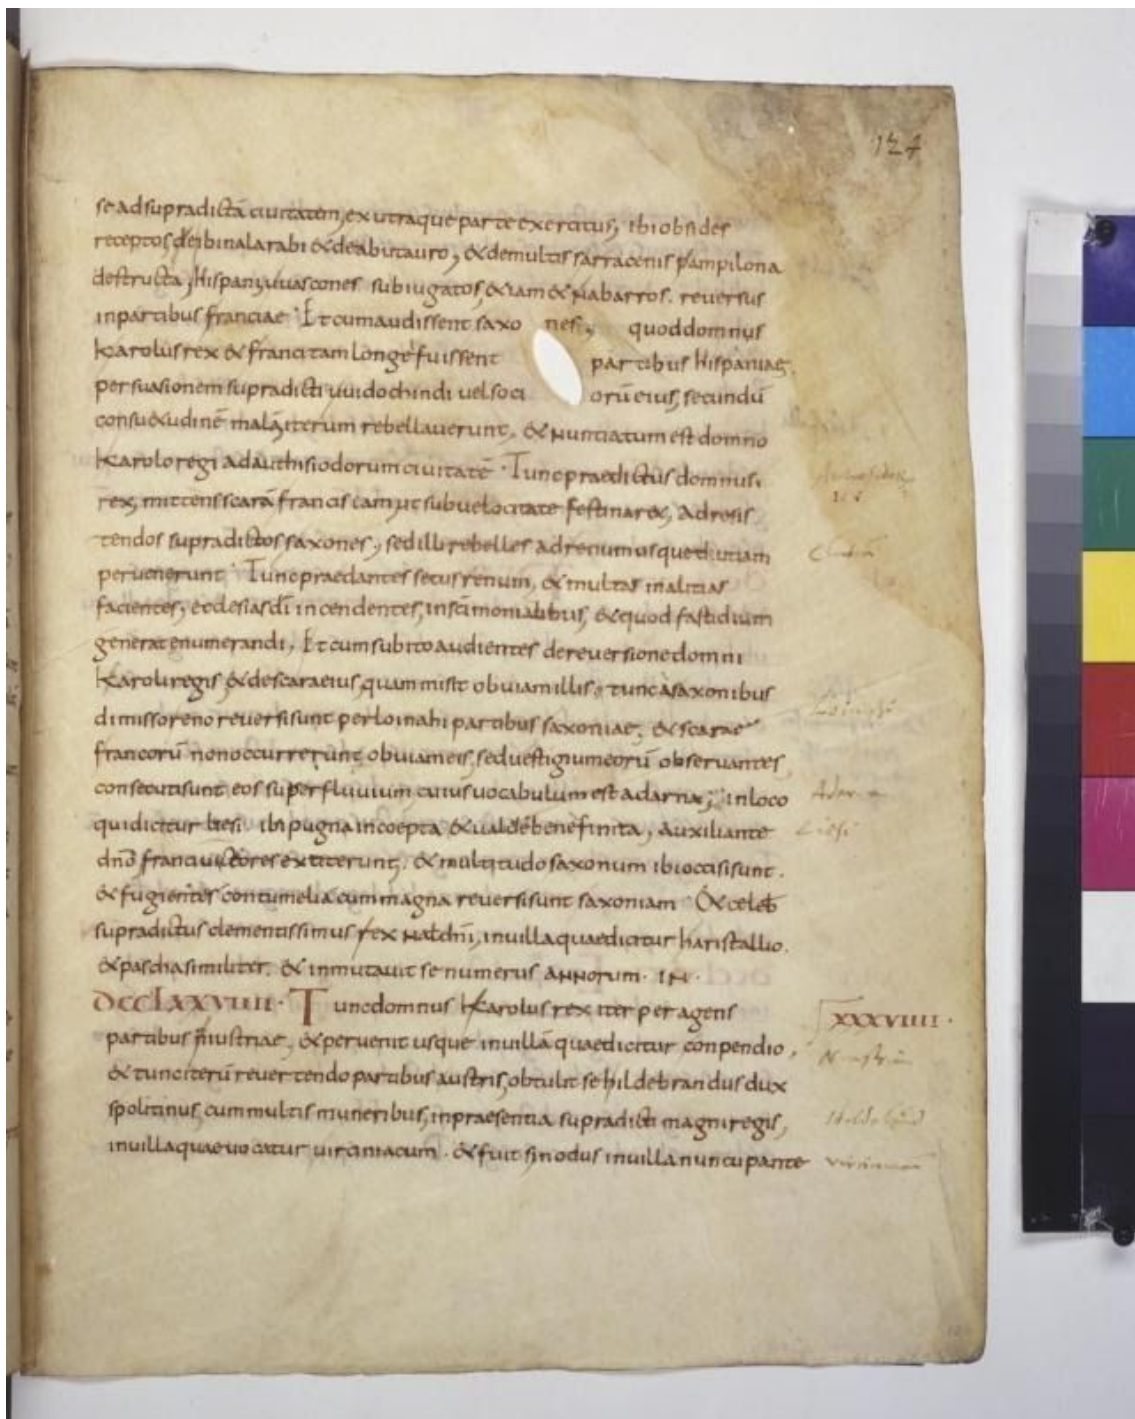 124
se ad supradictā ciuitatem, ex utraque parte exercitus, ibi obsides
receptos de ibinalarabi & de abutauro, & de multis sarracenis pampilona
destructa, hispani uuascones subiugatos, & iam & nabarros. reuersus
in partibus franciae. Et cum audissent saxones, quod domnus
karolus rex & franci tam longe fuissent partibus hispaniae,
per suasionem supradicti uuidochindi uel sociorū eius, secundū
consu&udinē malā, iterum rebellauerunt, & nuntiatum est domno
karolo regi ad authisiodorum ciuitatē. Tunc praedictus domnus
rex, mittens scarā franciscam, ut sub uelocitate festinar&, ad resis
tendos supradictos saxones, sed illi rebelles ad renum usque d utiam
peruenerunt. Tunc praedantes secus renum, & multas malitias
facientes, ecclesias dī incendentes, in scīmonialibus, & quod fastidium
generat enumerandi. Et cum subito audientes de reuersione domni
karoli regis & de scara eius, quam misit obuiam illis, tunc a saxonibus
dimisso reno reuersi sunt per loinahi partibus saxoniae, & scarae
francorū non occurrerunt obuiam eis, sed uestigium eorū obseruantes,
consecuti sunt eos super fluuium, cuius uocabulum est adarna, in loco
qui dicitur liesi. ibi pugna incoepta & ualde bene finita, auxiliante
dnō franci uictores extiterunt, & multitudo saxonum ibi occisi sunt.
& fugientes contumelia cum magna reuersi sunt saxoniam. & celeb
supradictus clementissimus rex natdnī, in uilla quae dicitur haristallio.
& pascha similiter. & inmutauit se numerus annorum. IN.
DCCLXXVIIII. Tunc domnus karolus rex iter peragens
XXXVIIII.
partibus niustriae, & peruenit usque in uillā quae dicitur conpendio,
& tunc iterū reuertendo partibus austris, obtulit se hildebrandus dux
spolitinus, cum multis muneribus, in praesentia supradicti magni regis,
in uilla quae uocatur uirciniacum. & fuit sinodus in uilla nuncupante